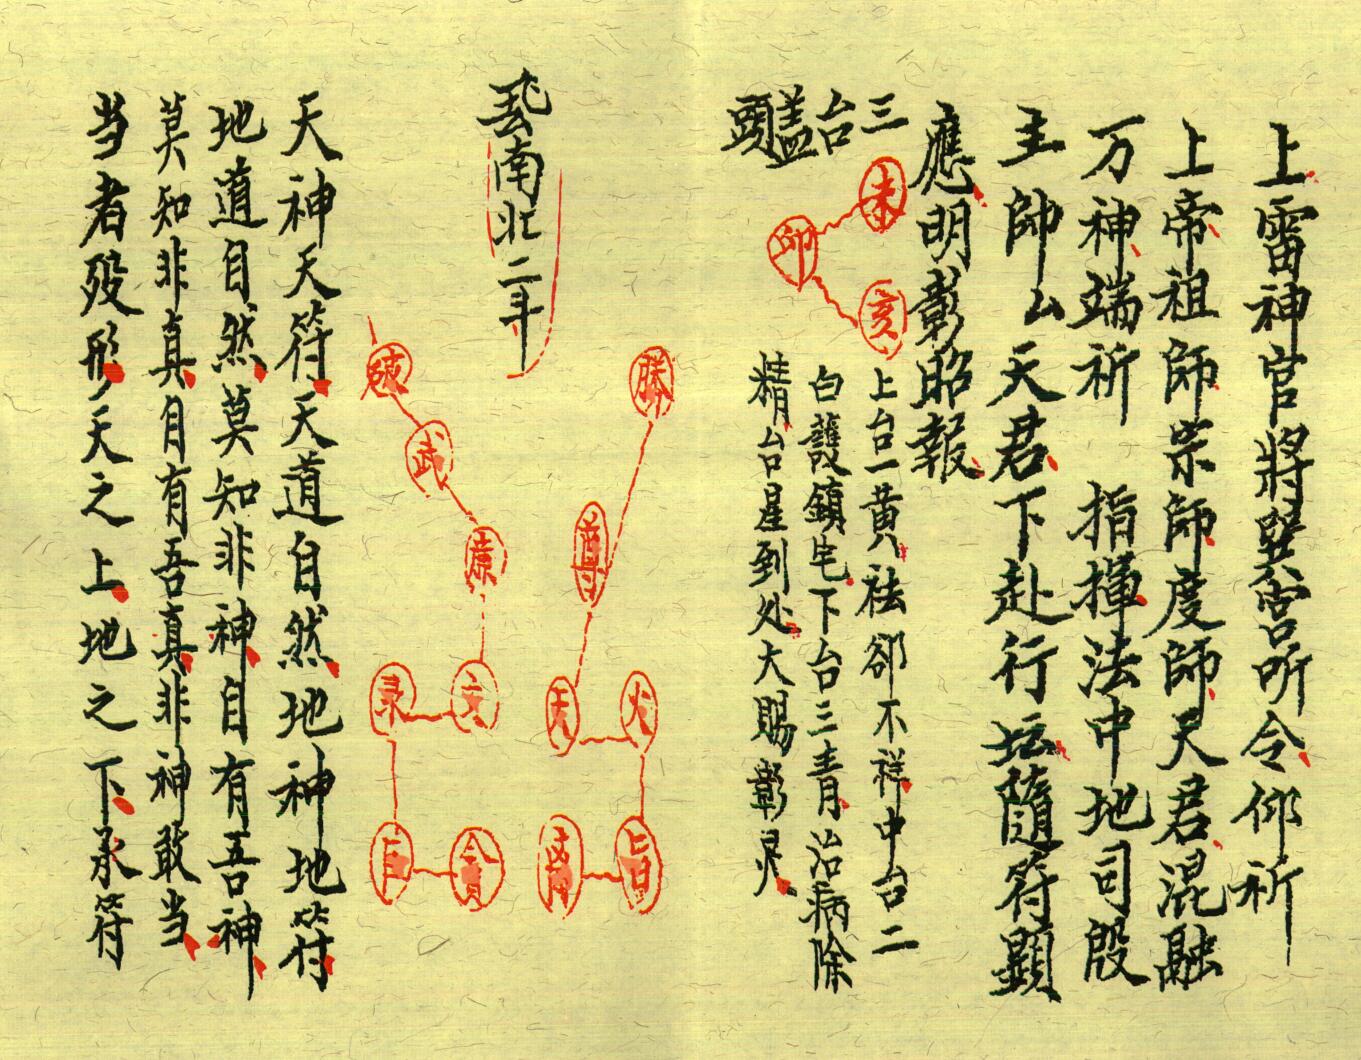 上雷神官將巽宮听令仰祈
上帝祖師宗師度師天君混融
万神端祈 指揮法中地司殷
主帥厶天君下赴行坛隨符顕
應明彰昭報
三台盖頭
未
卯
亥
上台一黄祛卻不祥中台二
白護鎮宅下台三青治病除
精台星到处大賜彰灵
勝
尊
天 火
旨
南北二斗
破
武
廉
文
禄
巨
貪
天神天符天道自然地神地符
地道自然莫知非神自有吾神
莫知非真自有吾真非神敢当
当者殁形天之上地之下承符